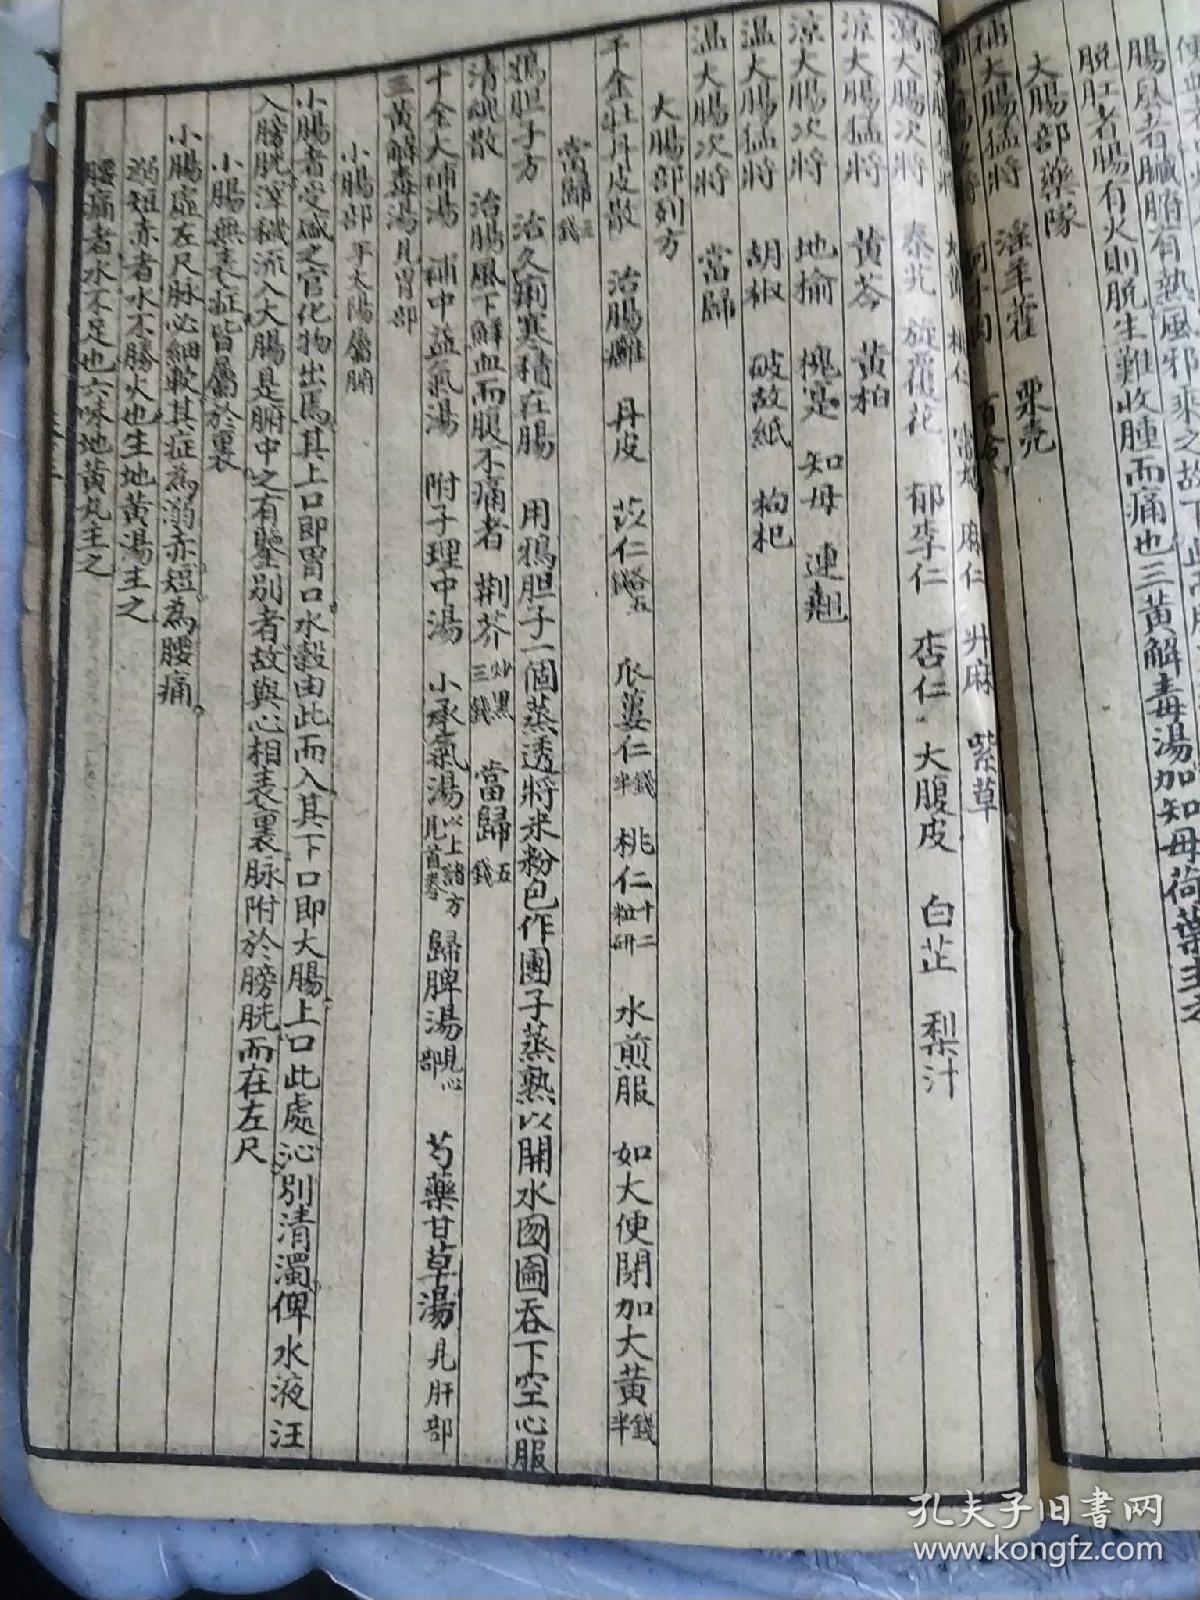 腸風者臟腑有熱風邪乘之故下
脫肛者腸有火則脫生難收腫而痛也三黃解毒湯加知母荷葉主之
大腸部藥隊
補大腸猛將　淫羊藿　粟壳
瀉大腸猛將　大黃　桃仁　麻仁　升麻　紫草
瀉大腸次將　秦艽　旋覆花　郁李仁　杏仁　大腹皮　白芷　梨汁
涼大腸猛將　黃芩　黃柏
涼大腸次將　地榆　槐寔　知母　連翹
温大腸猛將　胡椒　破故紙　枸杞
温大腸次將　當歸
大腸部列方
千金牡丹皮散　治腸癰　丹皮　苡仁各五錢　瓜蔞仁錢半　桃仁十二粒研　水煎服　如大便閉加大黃錢半
當歸三錢
鴉胆子方　治久痢寒積在腸　用鴉胆子一個蒸透將米粉包作團子蒸熟以開水囫圇吞下空心服
清魂散　治腸風下鮮血而腹不痛者　荆芥炒黑三錢　當歸五錢
十全大補湯　補中益氣湯　附子理中湯　小承氣湯以上諸方見首卷　歸脾湯見心部　芍藥甘草湯見肝部
三黃解毒湯見胃部
小腸部手太陽屬腑
小腸者受盛之官化物出焉其上口即胃口水穀由此而入其下口即大腸上口此處沁別清濁俾水液汪
入膀胱滓穢流入大腸是腑中之有鑒別者故與心相表裏脉附於膀胱而在左尺
小腸無表症皆屬於裏
小腸虛左尺脉必細軟其症為溺赤短為腰痛
溺短赤者水不勝火也生地黃湯主之
腰痛者水不足也六味地黃丸主之
孔夫子旧書网
www.kongfz.com